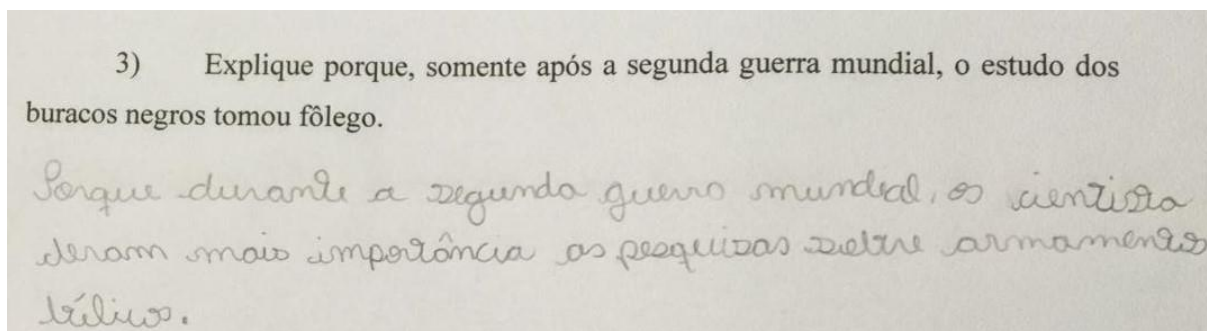 3) Explique porque, somente após a segunda guerra mundial, o estudo dos
buracos negros tomou fôlego.
Porque durante a segunda guerra mundial, os cientista
deram mais importância as pesquisas sobre armamentos
bélicos.